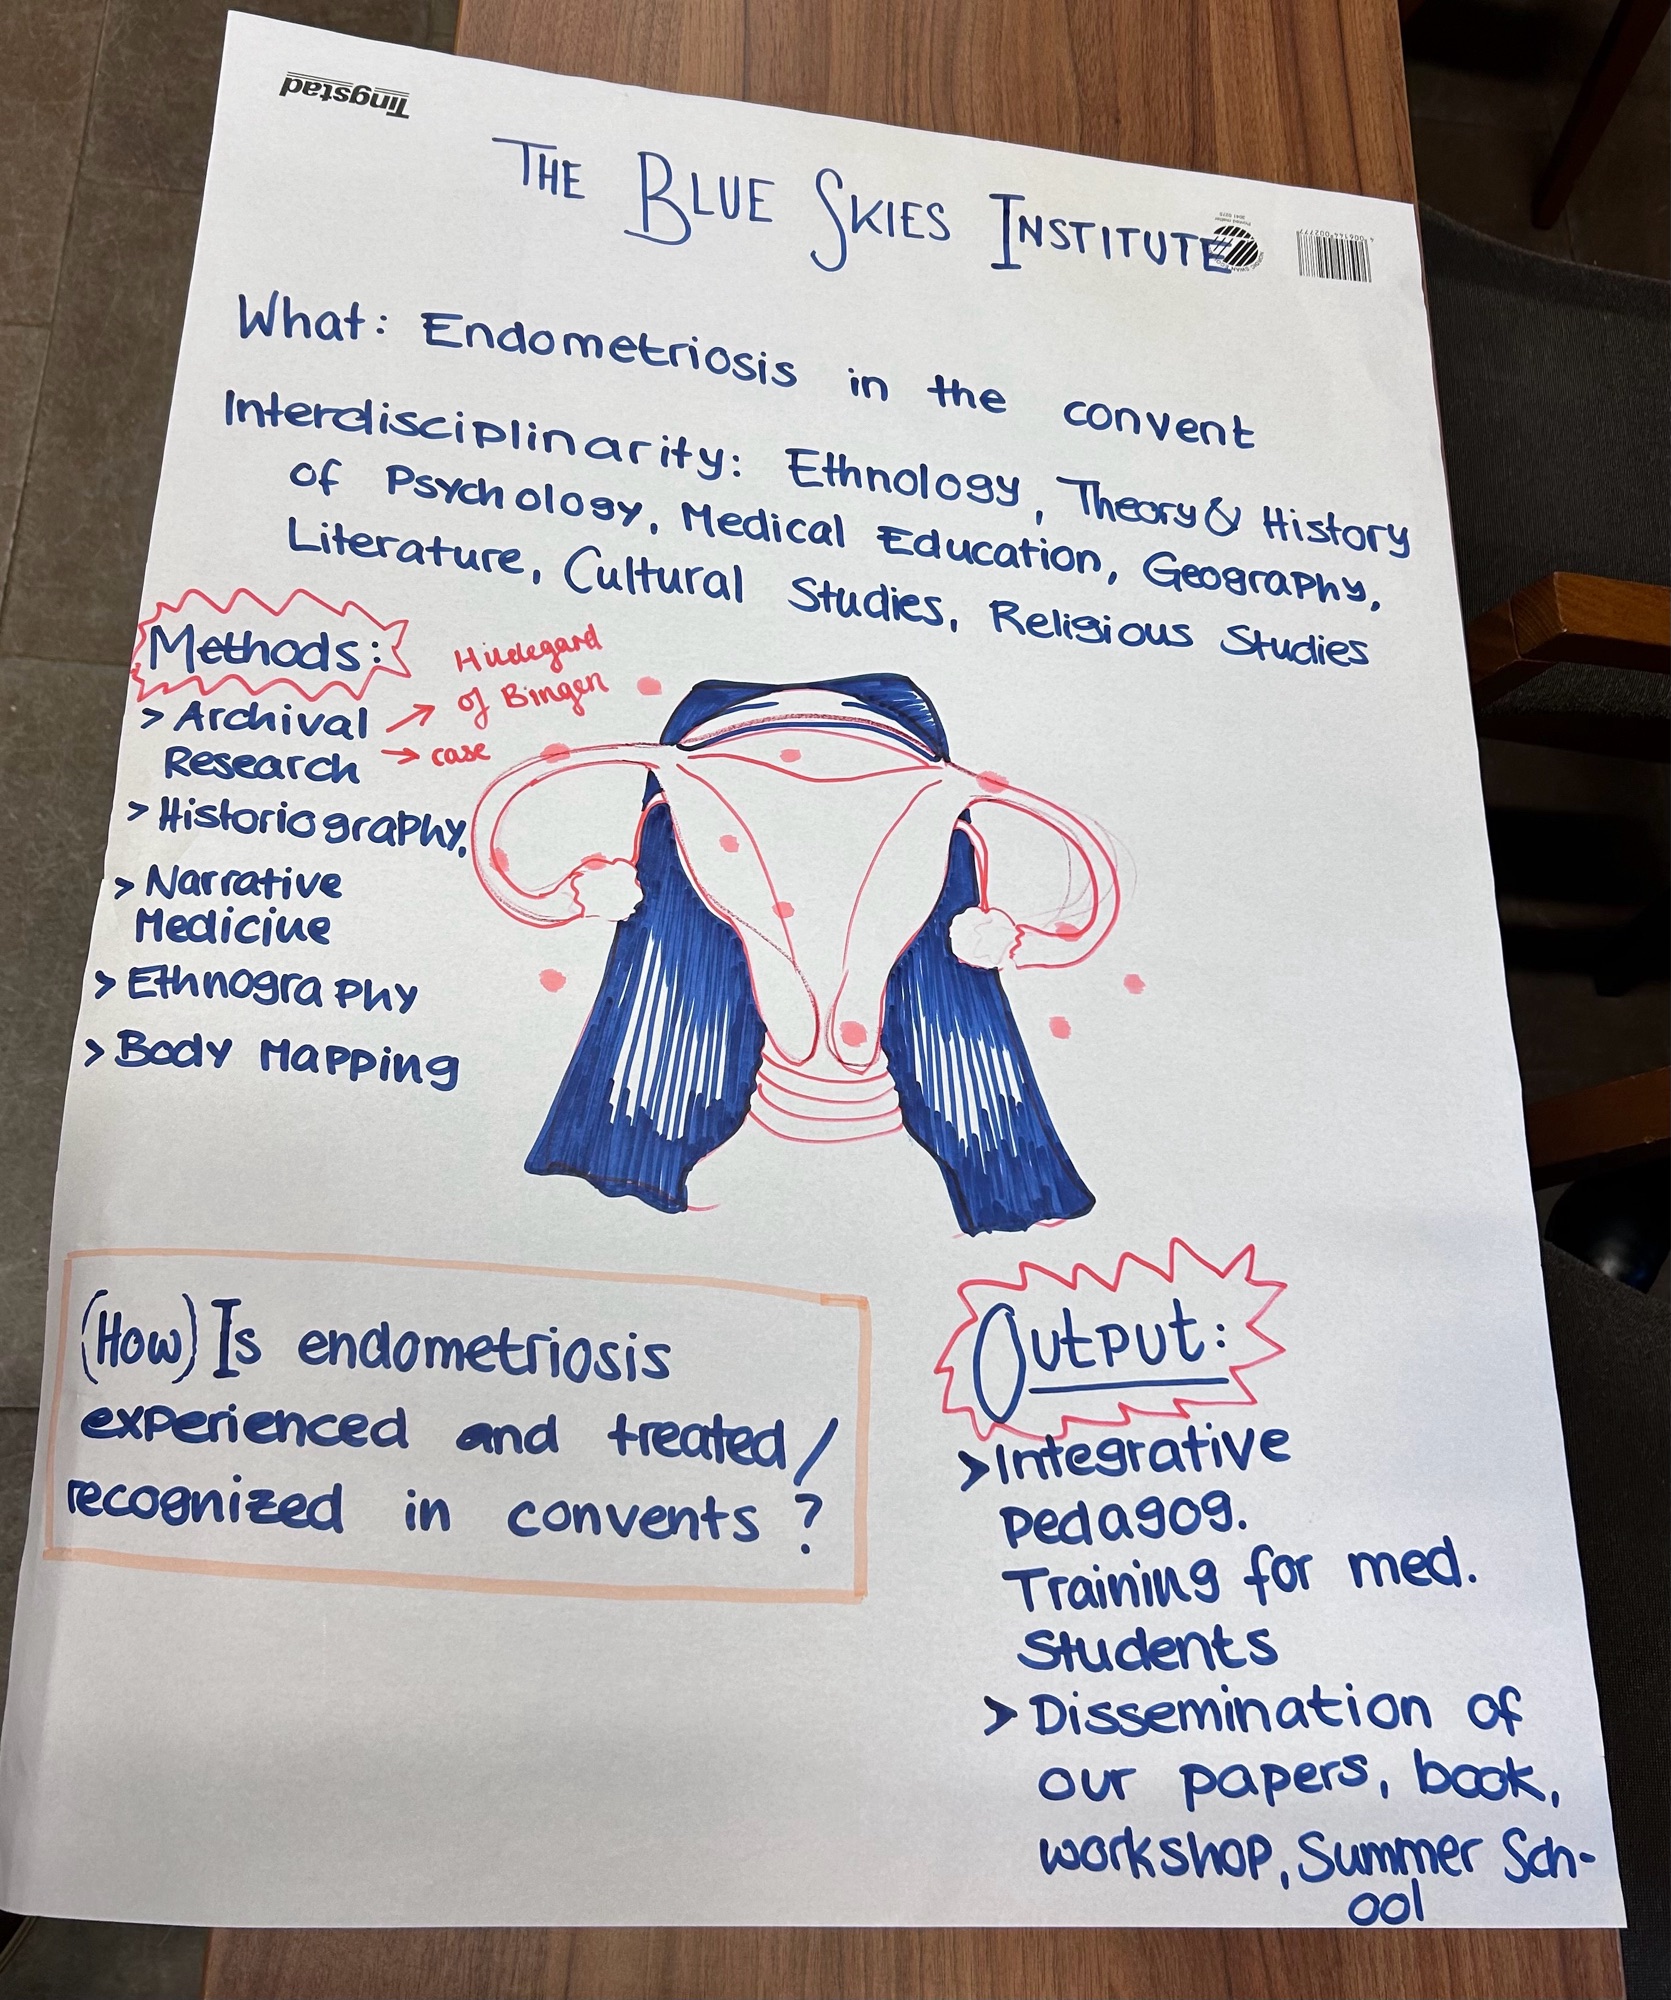 Tingstad
THE BLUE SKIES INSTITUTE
What: Endometriosis in the convent
Interdisciplinarity: Ethnology, Theory & History
of Psychology, Medical Education, Geography,
Literature, Cultural Studies, Religious Studies
Methods:
> Archival → Hildegard
of Bingen
Research → case
> Historiography,
> Narrative
Medicine
> Ethnography
> Body Mapping
(How) Is endometriosis
experienced and treated/
recognized in convents?
Output:
> Integrative
pedagog.
Training for med.
Students
> Dissemination of
our papers, book,
workshop, Summer Sch-
ool